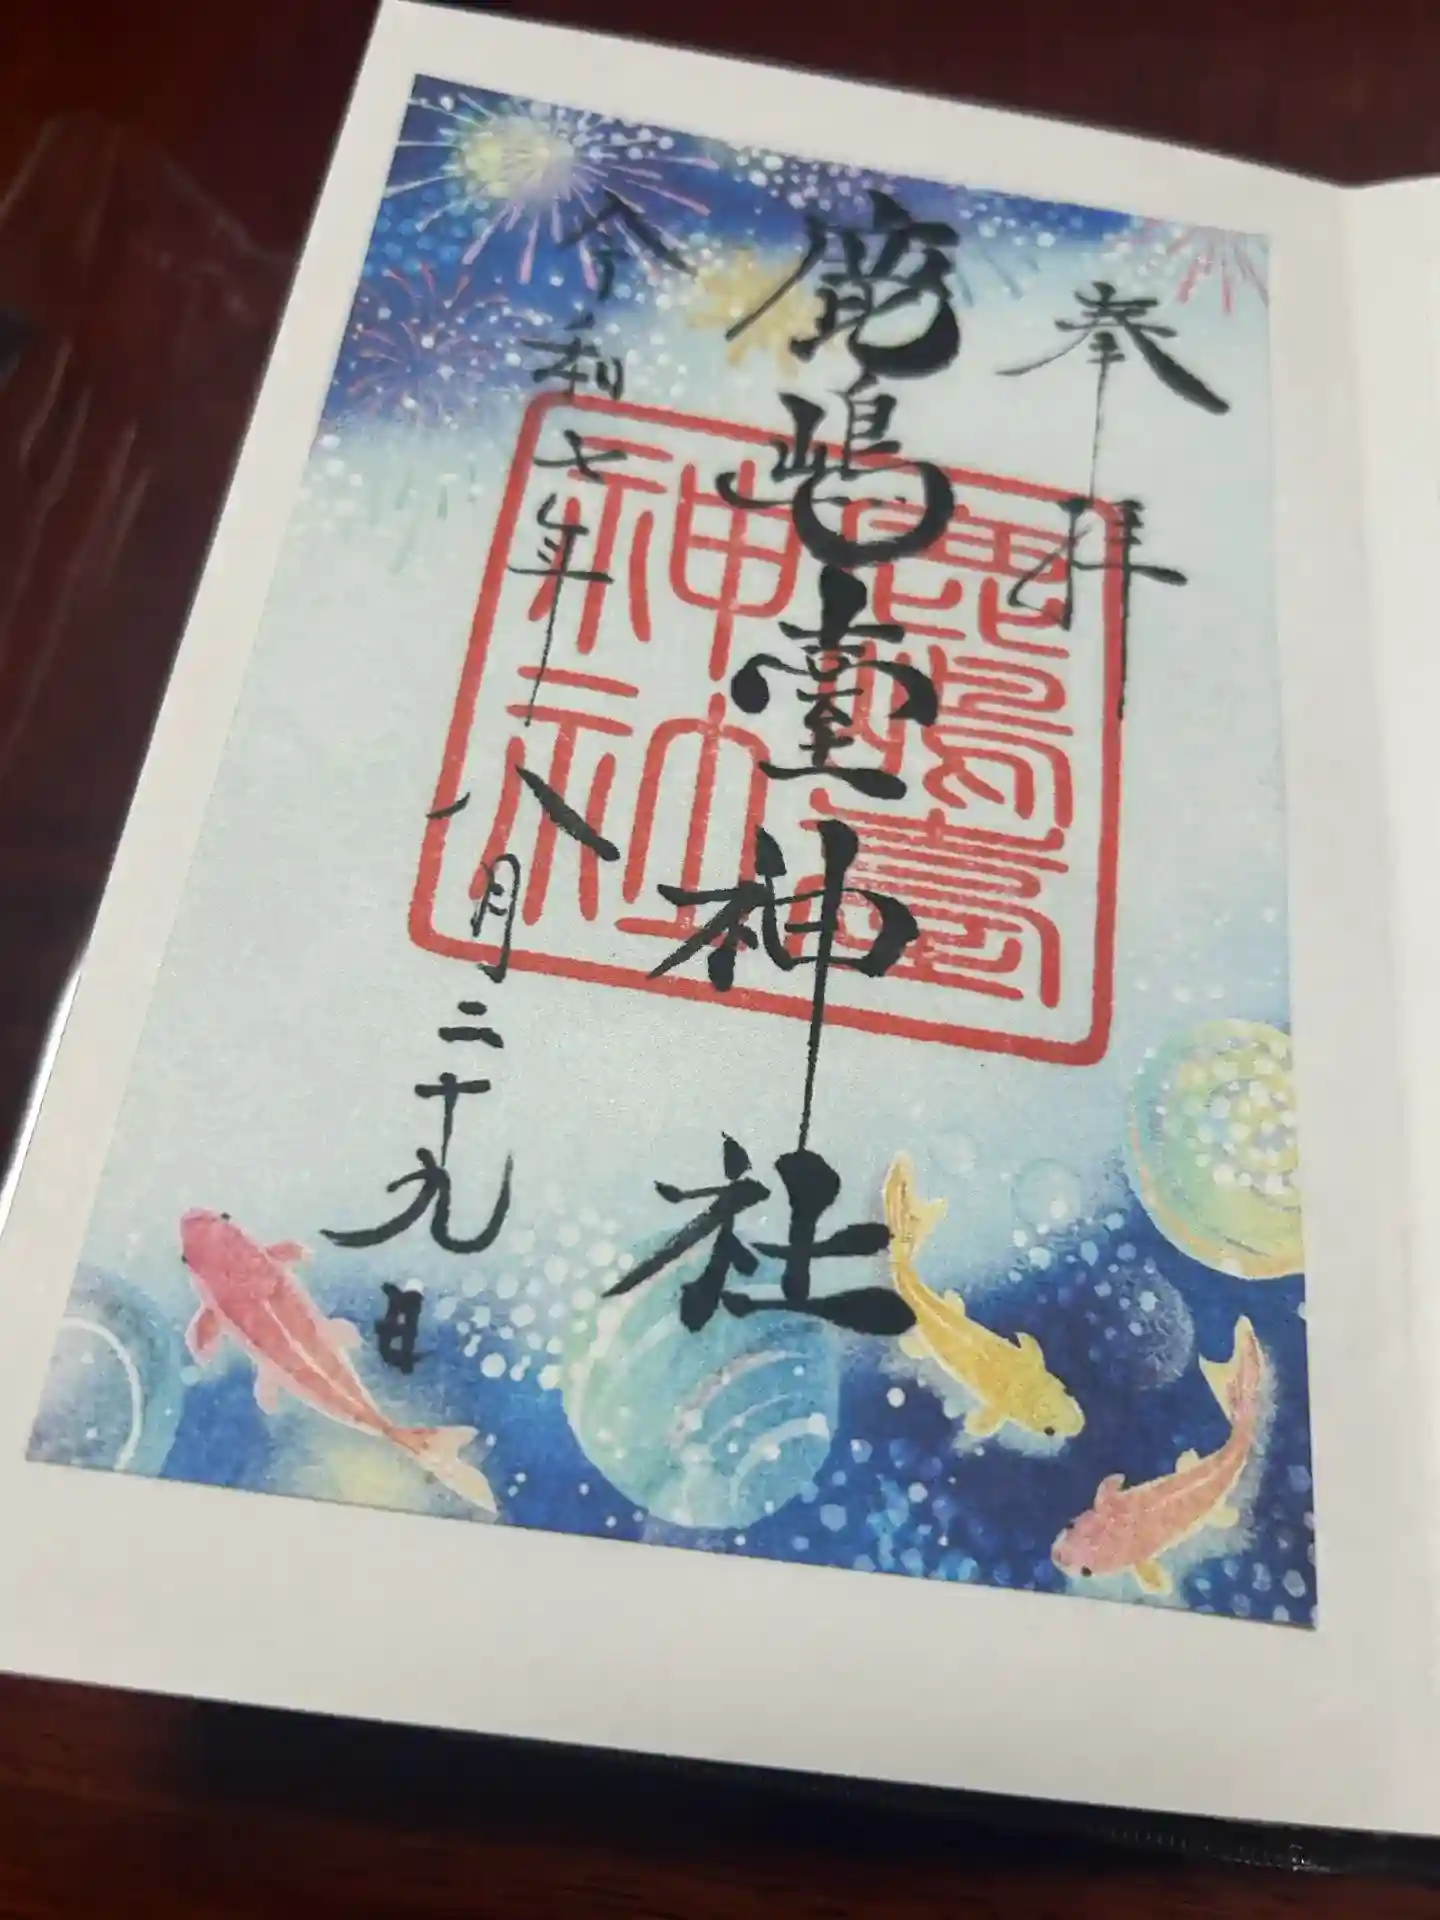 奉拝
鹿嶋臺神社
令和七年八月二十九日
鹿嶋臺
神社